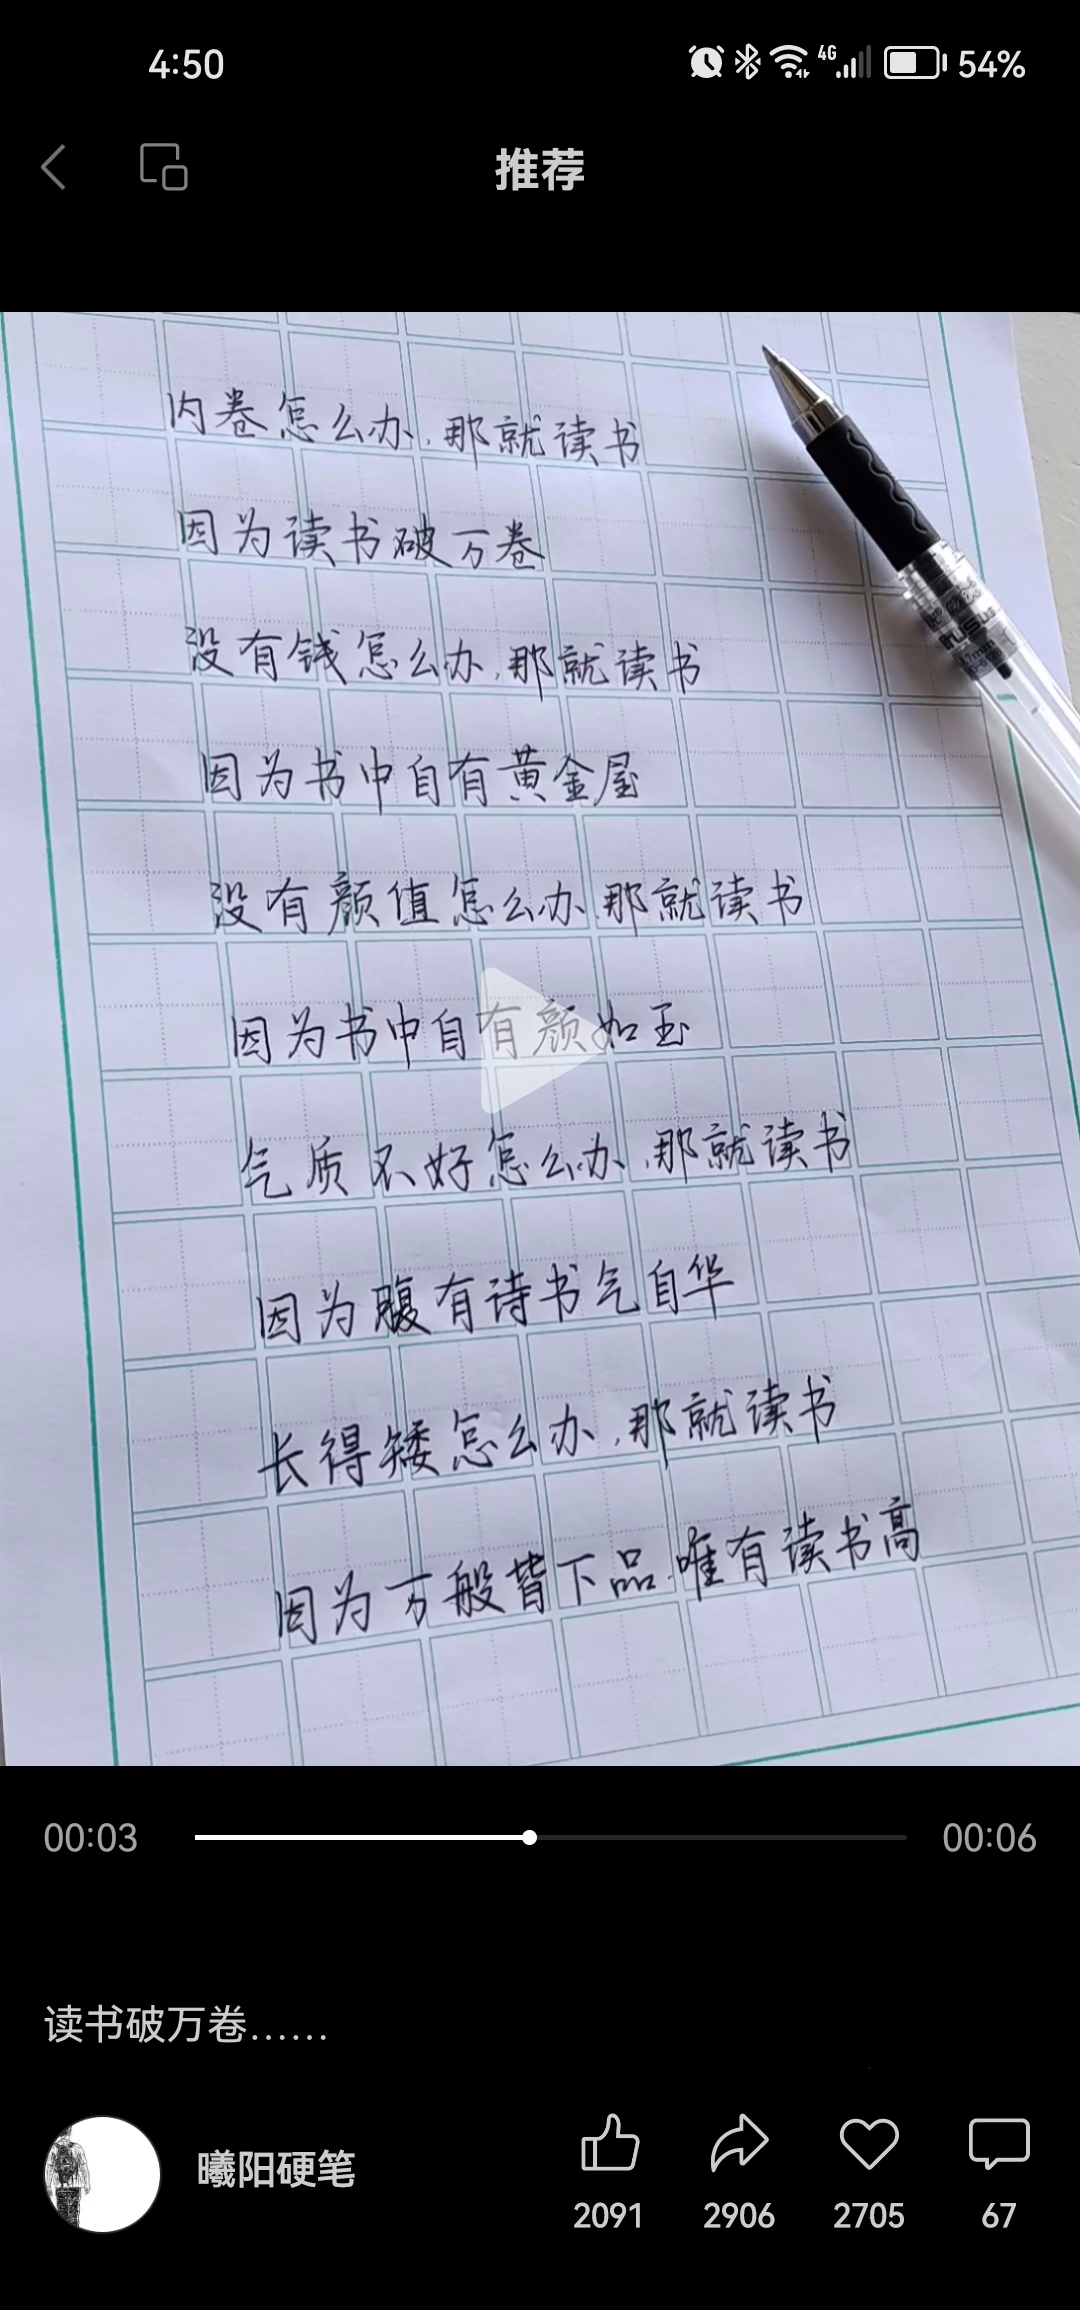 4:50 4G 54%
推荐
内卷怎么办,那就读书
因为读书破万卷
没有钱怎么办,那就读书
因为书中自有黄金屋
没有颜值怎么办,那就读书
因为书中自有颜如玉
气质不好怎么办,那就读书
因为腹有诗书气自华
长得矮怎么办,那就读书
因为万般皆下品,唯有读书高
00:03 00:06
读书破万卷……
曦阳硬笔
2091 2906 2705 67